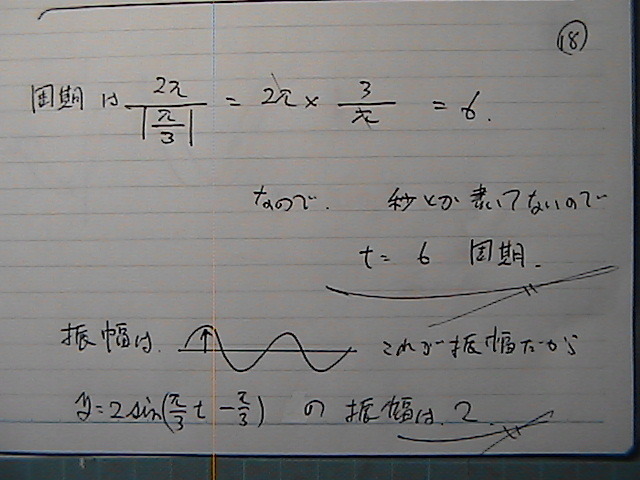 ⑱
周期は 2π/|π/3| = 2π × 3/π = 6.
なので. 秒とか書いてないので
t = 6 周期.
振幅は. これが振幅だから
y = 2sin(π/3 t - π/3) の 振幅は. 2.